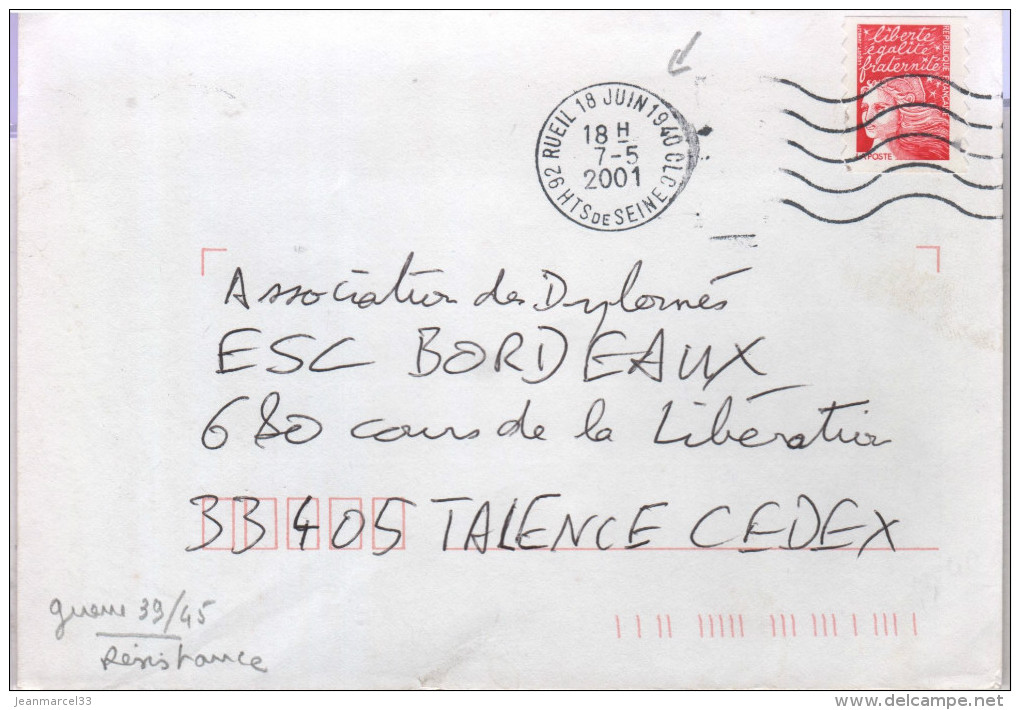 92 RUEIL 18 JUIN 1940 CLC
18 H
7-5
2001
HTS DE SEINE
liberté
égalité
fraternité
RÉPUBLIQUE FRANÇAISE
LA POSTE
Association des Diplomés
ESC BORDEAUX
680 cours de la Libération
33405 TALENCE CEDEX
guerre 39/45
Résistance
jeanmarcel33
www.delcampe.net